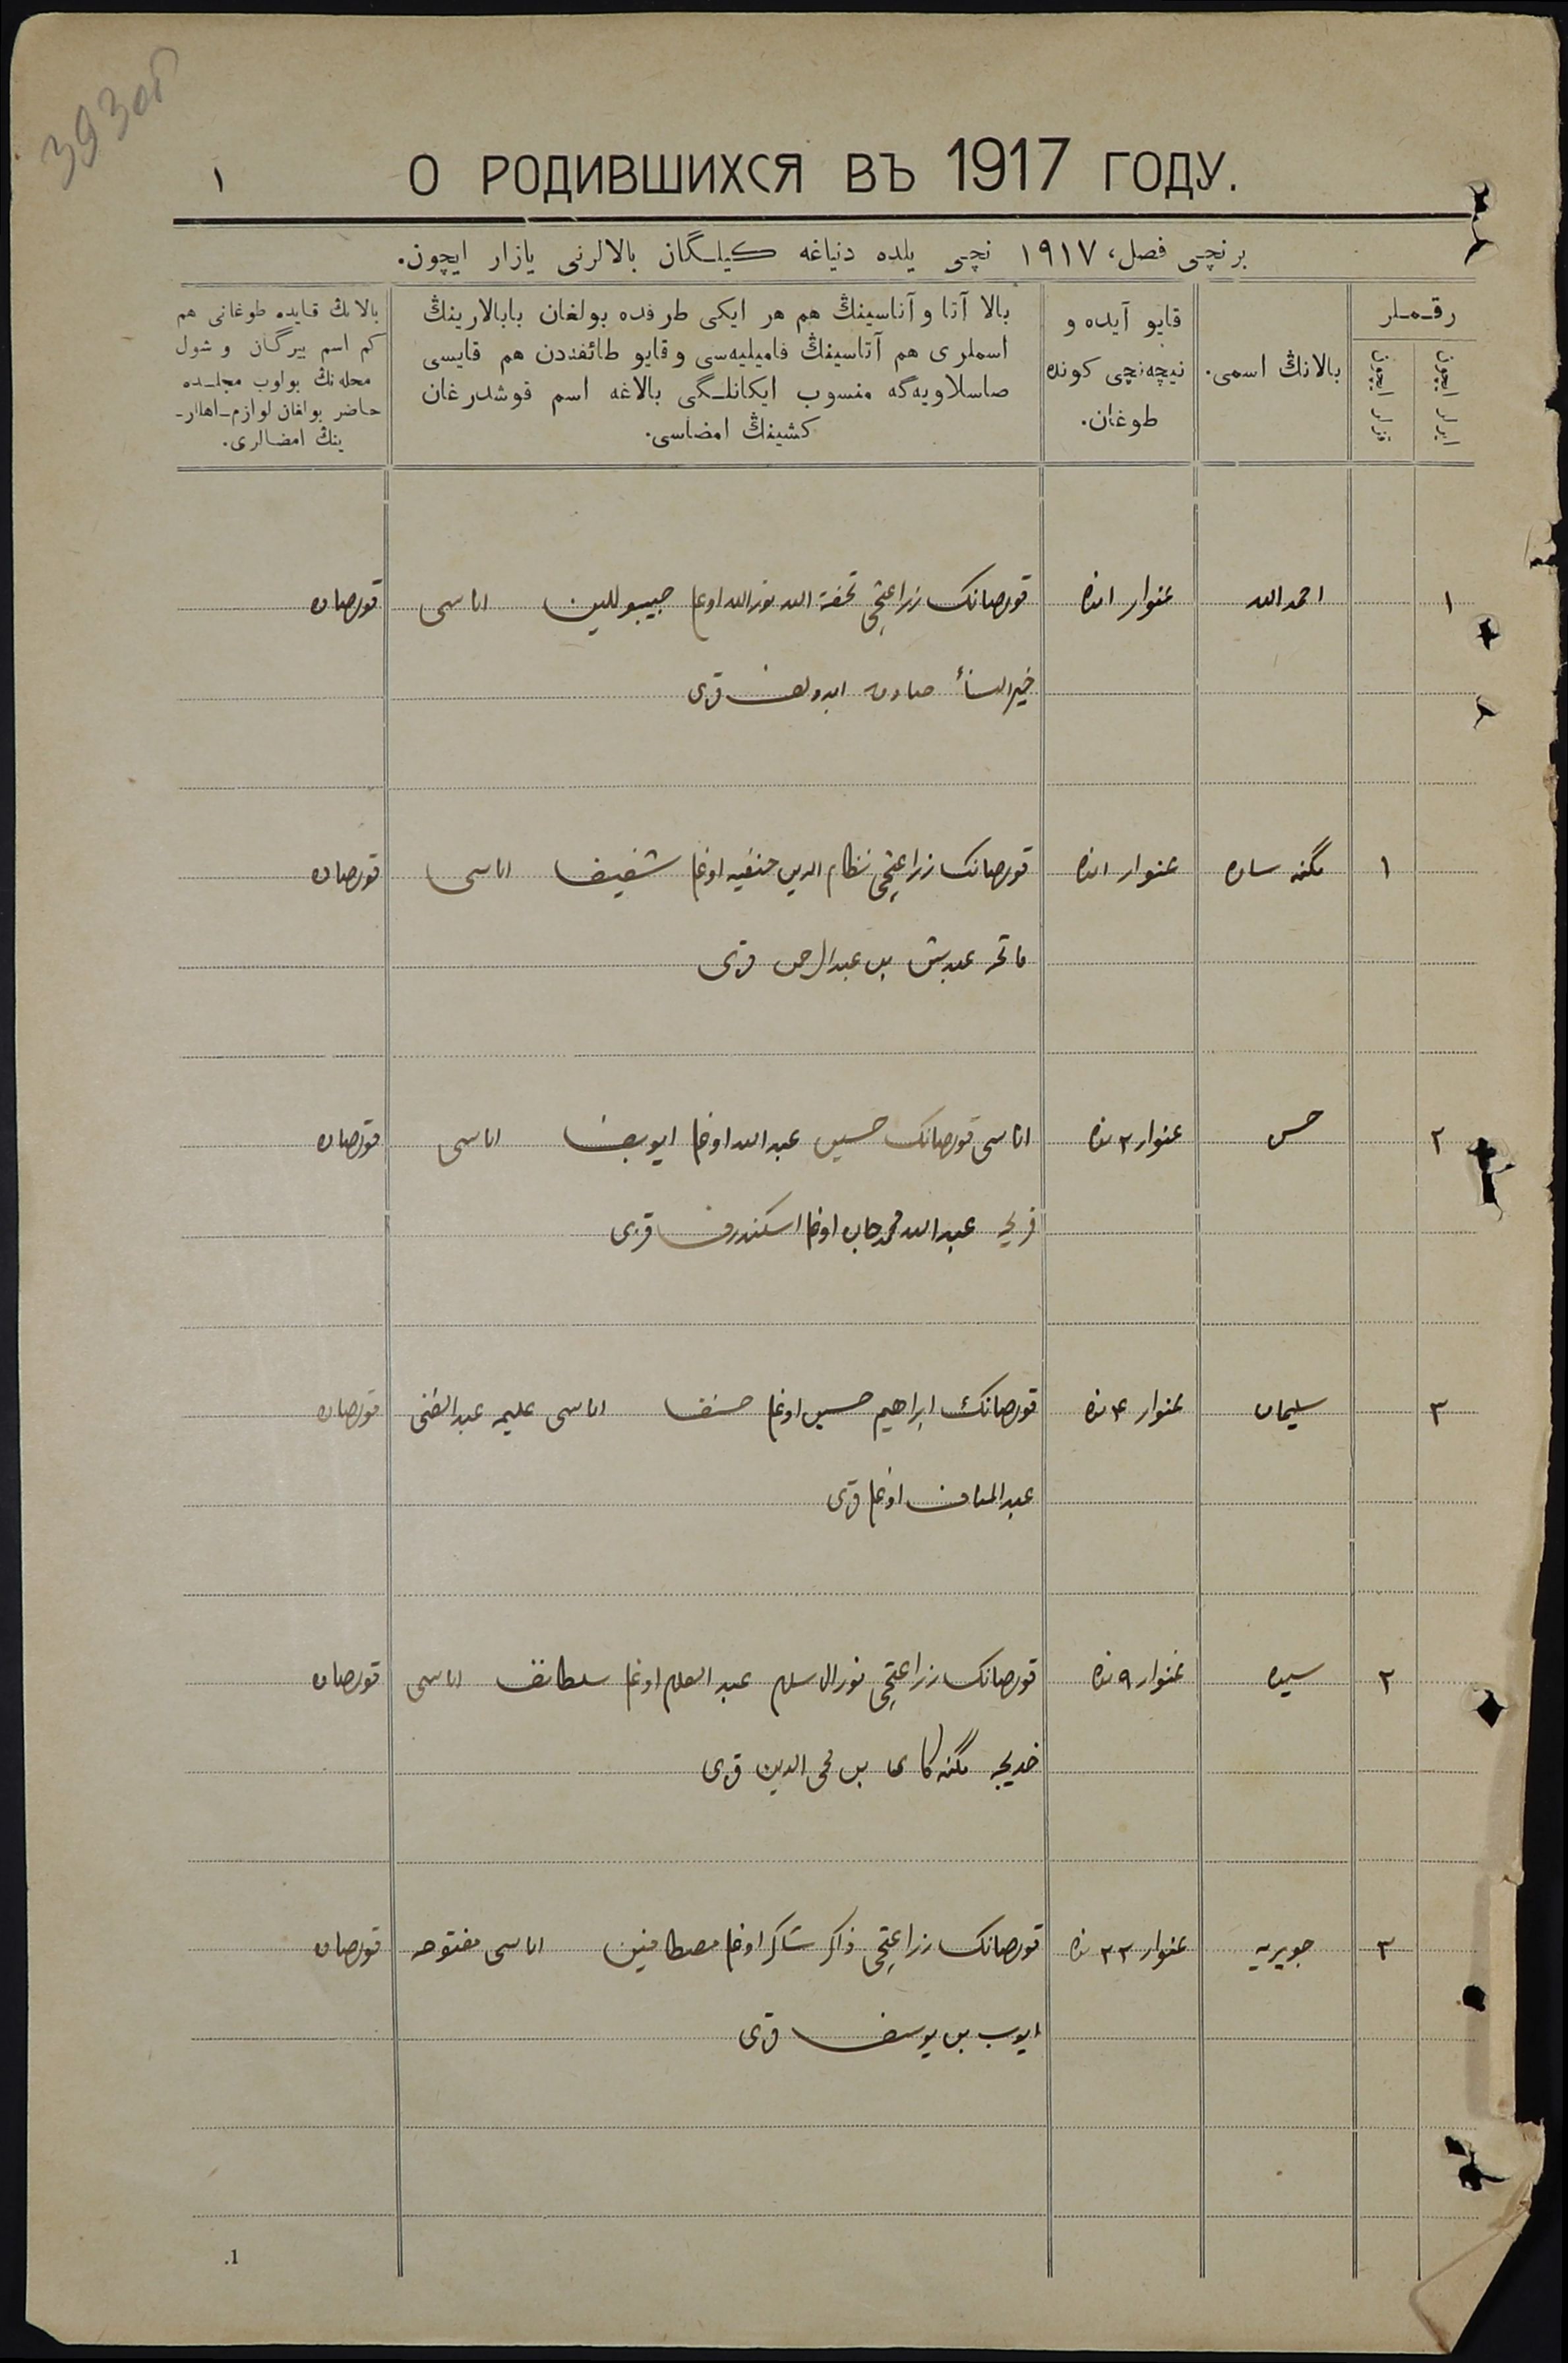 393об
١
О РОДИВШИХСЯ ВЪ 1917 ГОДУ.
برنچی فصل، ١٩١٧ نچی یلده دنیاغه کیلگان بالالرنی یازار ایچون.
رقملر
ایرلر ایچون
قزلر ایچون
بالانڭ اسمی.
قایو آیده و
نیچه‌نچی کونده
طوغان.
بالا آتا و آناسینڭ هم هر ایکی طرفده بولغان بابالارینڭ
اسملری هم آتاسینڭ فامیلیه‌سی وقایو طائفه‌دن هم قایسی
صاسلاویه‌گه منسوب ایکانلگی بالاغه اسم قوشدرغان
کشینڭ امضاسی.
بالانڭ قایده طوغانی هم
کم اسم بیرگان و شول
محله‌نڭ بولوب مجلسده
حاضر بولغان لوازم-اهللر-
ینڭ امضالری.
١ احمدالله غنوار ١نده قورصانک زراعتچی تحفة الله نورالله اوغلی حبیبوللین اناسی قورصاده
خیرالنسأ قزی
١ ساره غنوار ١نده قورصانک زراعتچی نظام الدین حنفیه اوغلی شفیغف اناسی قورصاده
بن عبدالرحمن قزی
٢ حسن غنوار ٢نده اناسی قورصانک حسین عبدالله اوغلی ایوبف اناسی قورصاده
عبدالله محمدجان اوغلی اسکندرف قزی
٣ سلیمان غنوار ۴نده قورصانک ابراهیم حسین اوغلی حسنف اناسی علیمه عبدالغنی قورصاده
عبدالمناف اوغلی قزی
٢ سیده غنوار ٩نده قورصانک زراعتچی نورالاسلام عبدالعلام اوغلی سلطانف اناسی قورصاده
خدیجه بن محی الدین قزی
٣ جویریه غنوار ٢٢نده قورصانک زراعتچی ذاکر شاکر اوغلی مصطافین اناسی مفتوحه قورصاده
ایوب بن یوسف قزی
1.